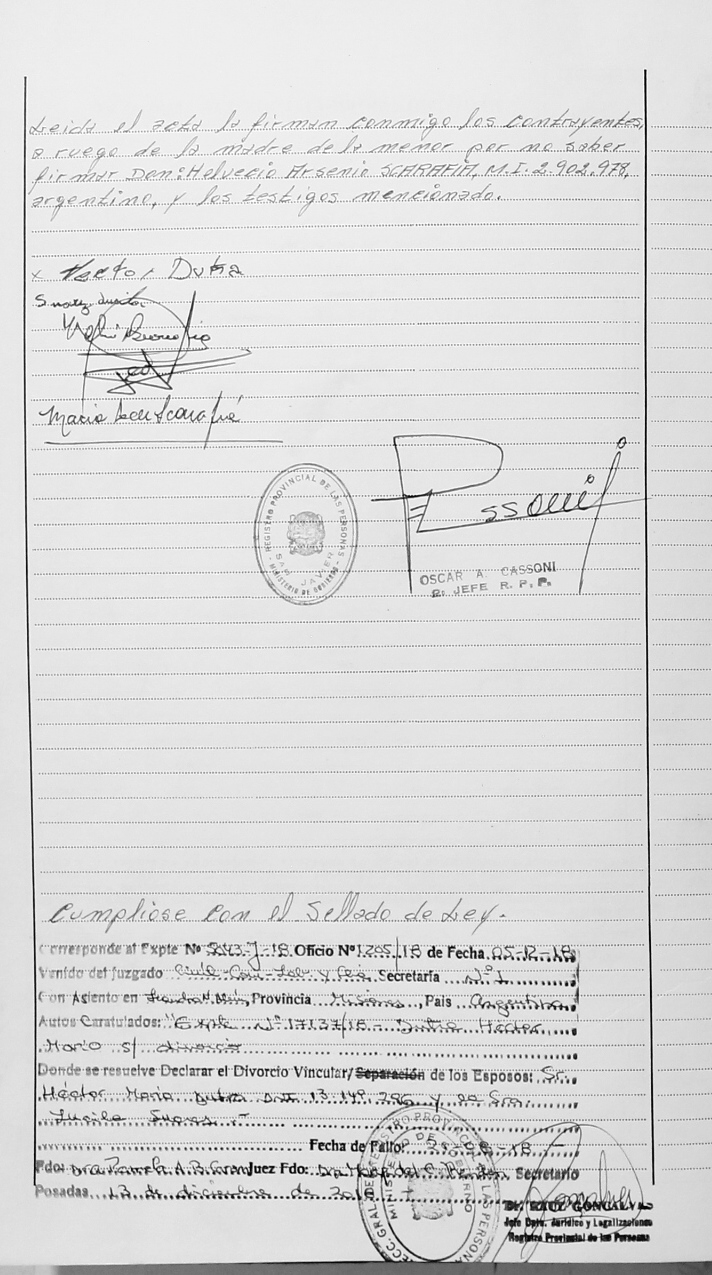 Leida el acta la firman conmigo los contrayentes,
a ruego de la madre de la menor por no saber
firmar Don: Helvecio Arsenio SCARAFIA, M.I. 2.902.978,
argentino, y los testigos mencionado.
x Hector Dutra
Maria
REGISTRO PROVINCIAL DE LAS PERSONAS
SAN JAVIER
MINISTERIO DE GOBIERNO
OSCAR A. CASSONI
JEFE R. P. P.
Cumpliose con el Sellado de Ley.-
Corresponde al Expte Nº 18 Oficio Nº 1205/18 de Fecha 05-12-18
Venido del juzgado Civil Com. Lab. y Secretaría Nº 1
Con Asiento en Leandro N. Provincia Misiones País Argentina
Autos Caratulados: "Expte Nº 17137/18 - Dutra Héctor
Mario s/ divorcio
Donde se resuelve Declarar el Divorcio Vincular/Separación de los Esposos: Sr.
Héctor Mario Dutra DNI 13.149.296 y la Sra.
Lucila Suares.-
Fecha de Fallo: 08-18
Fdo: Dra A. B. Juez Fdo: Dra del C. Secretario
Posadas 13 de diciembre de 2018
Dr. RAUL GONCALVES
Jefe Dpto. Jurídico y Legalizaciones
Registro Provincial de las Personas